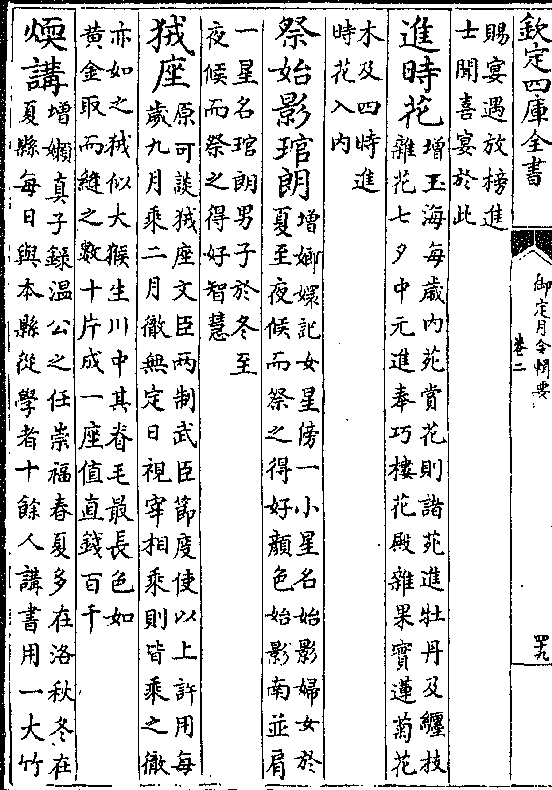 欽定四庫全書
御定月令輯要
卷二
四九
賜宴遇放榜進
士聞喜宴於此
進時花
增玉海每歲内苑賞花則諸苑進牡丹及纒枝
雜花七夕中元進奉巧樓花殿雜果實蓮菊花
木及四時進
時花入内
祭始影琯朗
增嫏嬛記女星傍一小星名始影婦女於
夏至夜候而祭之得好顔色始影南並肩
一星名琯朗男子於冬至
夜候而祭之得好智慧
狨座
原可談狨座文臣兩制武臣節度使以上許用每
歲九月乘二月徹無定日視宰相乘則皆乘之徹
亦如之狨似大猴生川中其脊毛最長色如
黄金取而縫之數十片成一座值直錢百千
煗講
增嬾真子錄温公之任崇福春夏多在洛秋冬在
夏縣每日與本縣從學者十餘人講書用一大竹